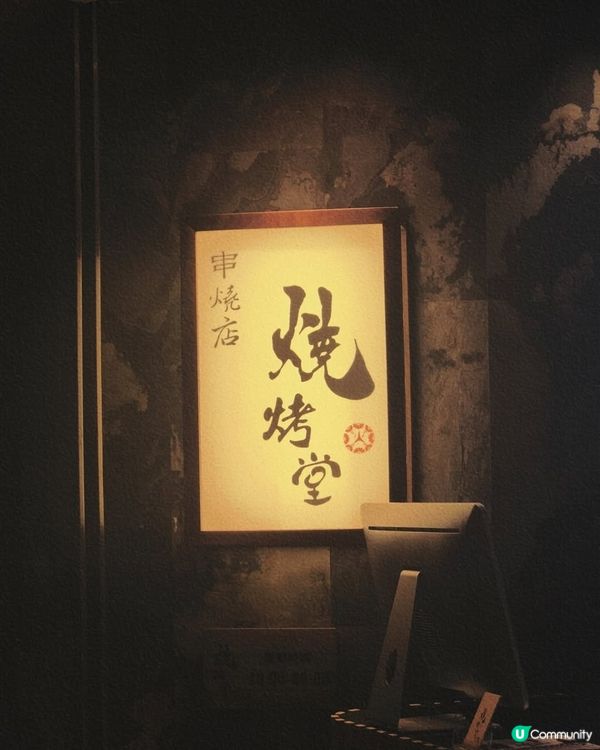 串燒店
燒烤堂
火
U Community